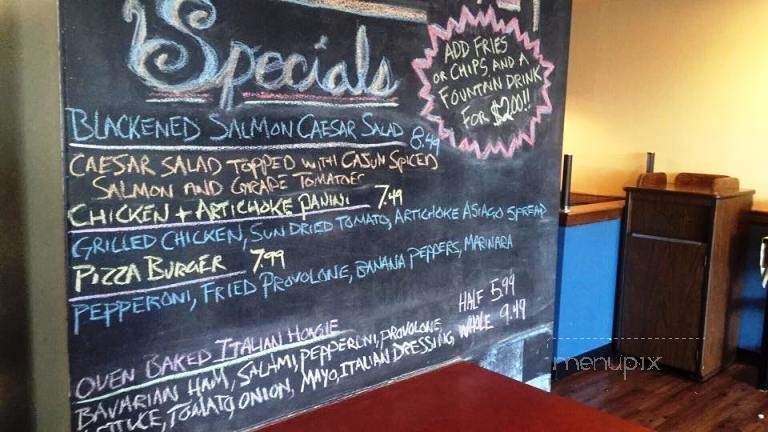 Specials
ADD FRIES
OR CHIPS AND A
FOUNTAIN DRINK
FOR $2.00!!
BLACKENED SALMON CAESAR SALAD 8.49
CAESAR SALAD TOPPED WITH CAJUN SPICED
SALMON AND GRAPE TOMATOES
CHICKEN + ARTICHOKE PANINI 7.49
GRILLED CHICKEN, SUN DRIED TOMATO, ARTICHOKE ASIAGO SPREAD
PIZZA BURGER 7.99
PEPPERONI, FRIED PROVOLONE, BANANA PEPPERS, MARINARA
OVEN BAKED ITALIAN HOAGIE HALF 5.99
BAVARIAN HAM, SALAMI, PEPPERONI, PROVOLONE WHOLE 9.49
LETTUCE, TOMATO, ONION, MAYO, ITALIAN DRESSING
menupix